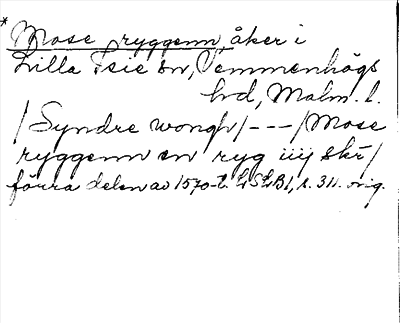 * Mose ryggenn, åker i
Lilla Isie sn, Vemmenhögs
hd, Malm. l.
/Syndre wongh/---/Mose
ryggenn en ryg iiij skr/
förra delen av 1570-t. LSLB1, s. 311. orig.